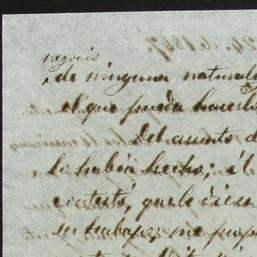 negocio
de ninguna natural
el que pueda hacerlo
Del asunto d
lo habia hecho; él
contestó, que le diese
su trabajo; me prop